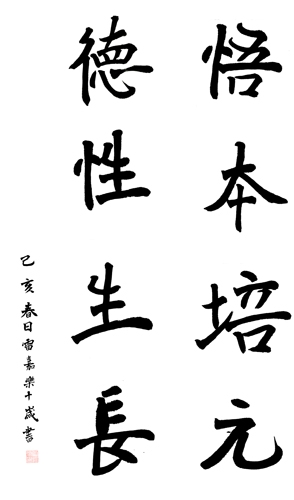 悟本培元
德性生長
己亥春日雷嘉樂十歲書